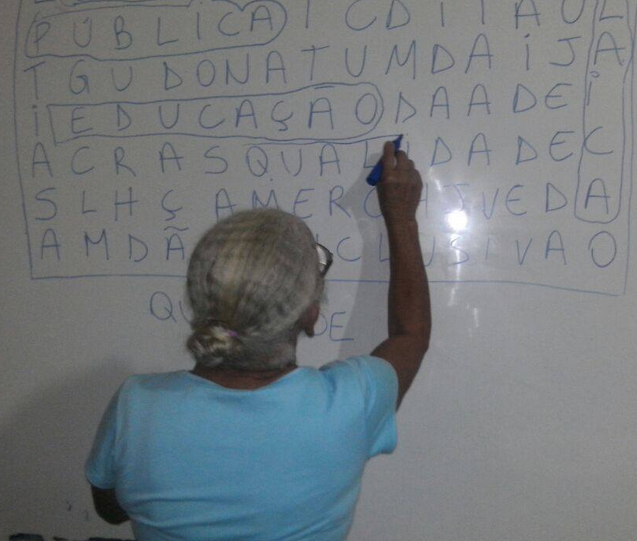 PÚBLICA I C D I T A U L
T G U D O N A T U M D A I J A
I EDUCAÇÃO D A A D E I
A C R A S QUAL I D A D E C
S L H Ç A M E R C
V E D A
A M D Ã
CLUSIVA O
QU
DE